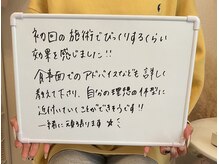 初回の施術でびっくりするくらい
効果を感じました!!
食事面でのアドバイスなども詳しく
教えて下さり、自分の理想の体型に
近付いていくことができそうです!!
一緒に頑張ります☆彡